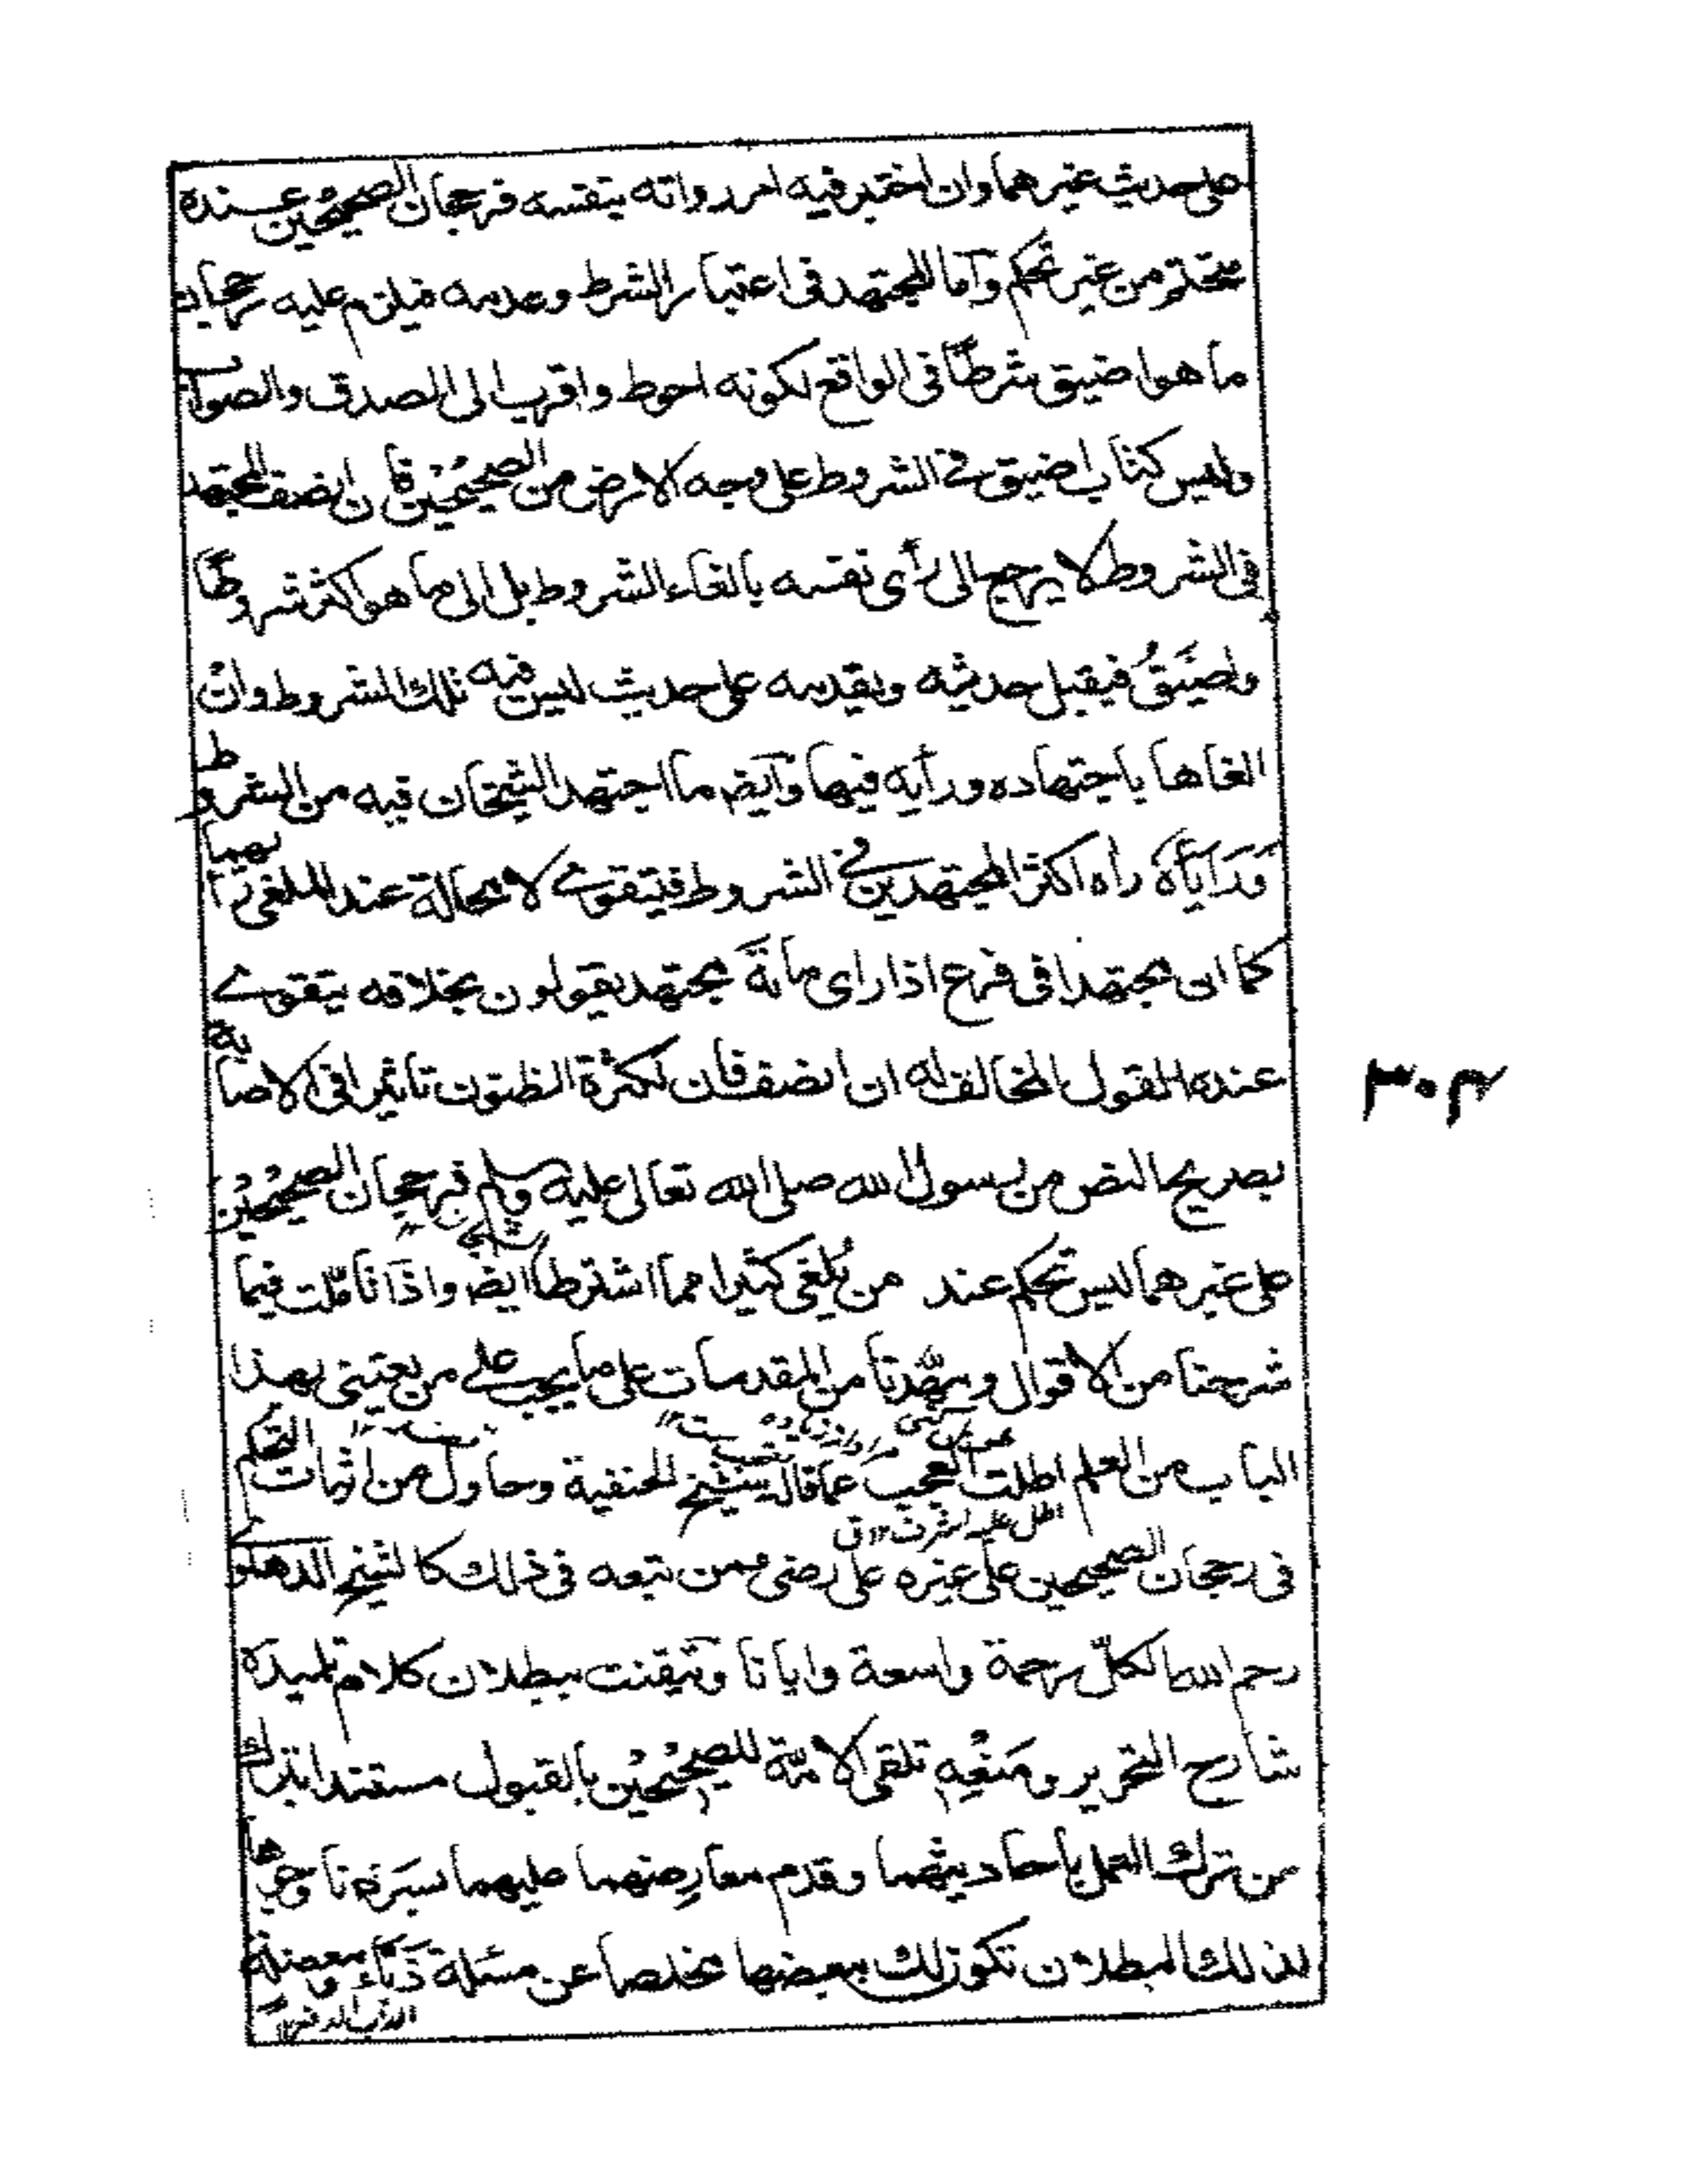 على حديث غيرهما وان اختبر فيه امر رواته بنفسه فرجحان الصحيحين عنده
متحتم من غير تحكم وآما المجتهد فى اعتبار الشرط وعدمه فيلزم عليه رجحان
ما هو اضيق شرطًا فى الواقع لكونه احوط واقرب الى الصدق والصواب
وليس كتاب اضيق فے الشروط على وجه الارض من الصحيحين فان انصف المجتهد
فى الشروط لا يرجع الى رأى نفسه بالغاء الشروط بل الى ما هو اكثر شروطًا
واضيَقُ فيقبل حديثه ويقدمه على حديث ليس فيه تلك الشروط وان
الغاها باجتهاده ورأيه فيها وآيضا ما اجتهد الشيخان فيه من الشروط
ورأياه راٰه اكثر المجتهدين فے الشروط فيتقوے لا محالة عند الملغى لها
كما ان مجتهدا فى فرع اذا راى مائة مجتهد يقولون بخلافه يتقوے
عنده القول المخالف له ان انصف فان لكثرة الظنون تاثيرا فى الاصابة
بصريح النص من رسول الله صلى الله تعالى عليه وسلم فرجحان الصحيحين
على غيرهما ليس تحكم عند من يُلغى كثيرا مما اشترطا ايضا واذا تأملت فيما
شرحنا من الاقوال ومهّدنا من المقدمات على ما يجب علے من يعتنى بهذا
الباب من العلم اطلت العجب عما قاله شيخ الحنفية وحاول من اثبات التحكم
فى رجحان الصحيحين على غيره على رضى وممن تبعه فى ذلك كالشيخ الدهلوے
رحم الله الكلّ رحمة واسعة وايانا وتيقنت ببطلان كلام تلميذه
شارح التحرير ومَنْعِه تلقى الامّة للصحيحين بالقبول مستندا بترك
من ترك العمل باحاديثهما وقدم معارضهما عليهما بسَرْدنا وجوها
لذلك البطلان تكون لك ببعضها مخلصا عن مسئلة ذبّاء ومعضلة
٣٠٣